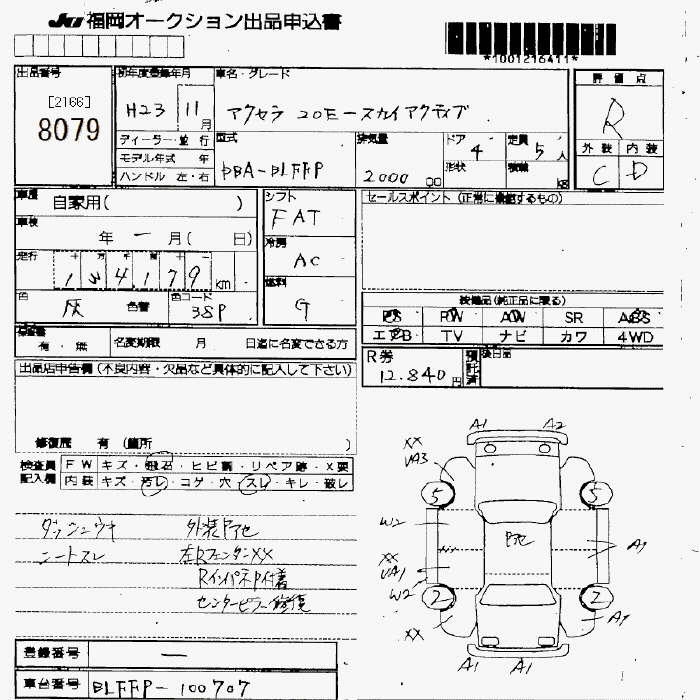 JU 福岡オークション出品申込書
*1001216411*
出品番号
[2166]
8079
初年度登録年月
H23 11月
ディーラー・並行
モデル年式 年
ハンドル 左・右
車名・グレード
アクセラ 20E-スカイアクティブ
型式
DBA-BLFFP
排気量
2000 cc
ドア
4
形状
定員
5 人
積載
kg
評価点
R
外装 内装
C D
車歴
自家用( )
車検
年 一 月( 日)
走行
十 万 千 百 十 一
km
色
灰 色替
色コード
38P
シフト
FAT
冷房
AC
燃料
G
セールスポイント(正常に機能するもの)
装備品(純正品に限る)
PS PW AW SR ABS
エアB TV ナビ カワ 4WD
有・無
名変期限 月 日迄に名変できる方
R券
12.840円
預託済
後日品
出品店申告欄(不良内容・欠品など具体的に記入して下さい)
修復歴 有(箇所 )
検査員記入欄
FW キズ・飛石・ヒビ割・リペア跡・X要
内装 キズ・汚レ・コゲ・穴・スレ・キレ・破レ
ダッシュウキ 外装P凸
シートスレ 左RフェンダーXX
Rインパネ
センターピラー修復
登録番号 一
車台番号 BLFFP-100707
A1 A2
XX
UA3
5 5
W2
P凸
A1
XX
UA1
W2
2 2
XX
A1
A1 A1